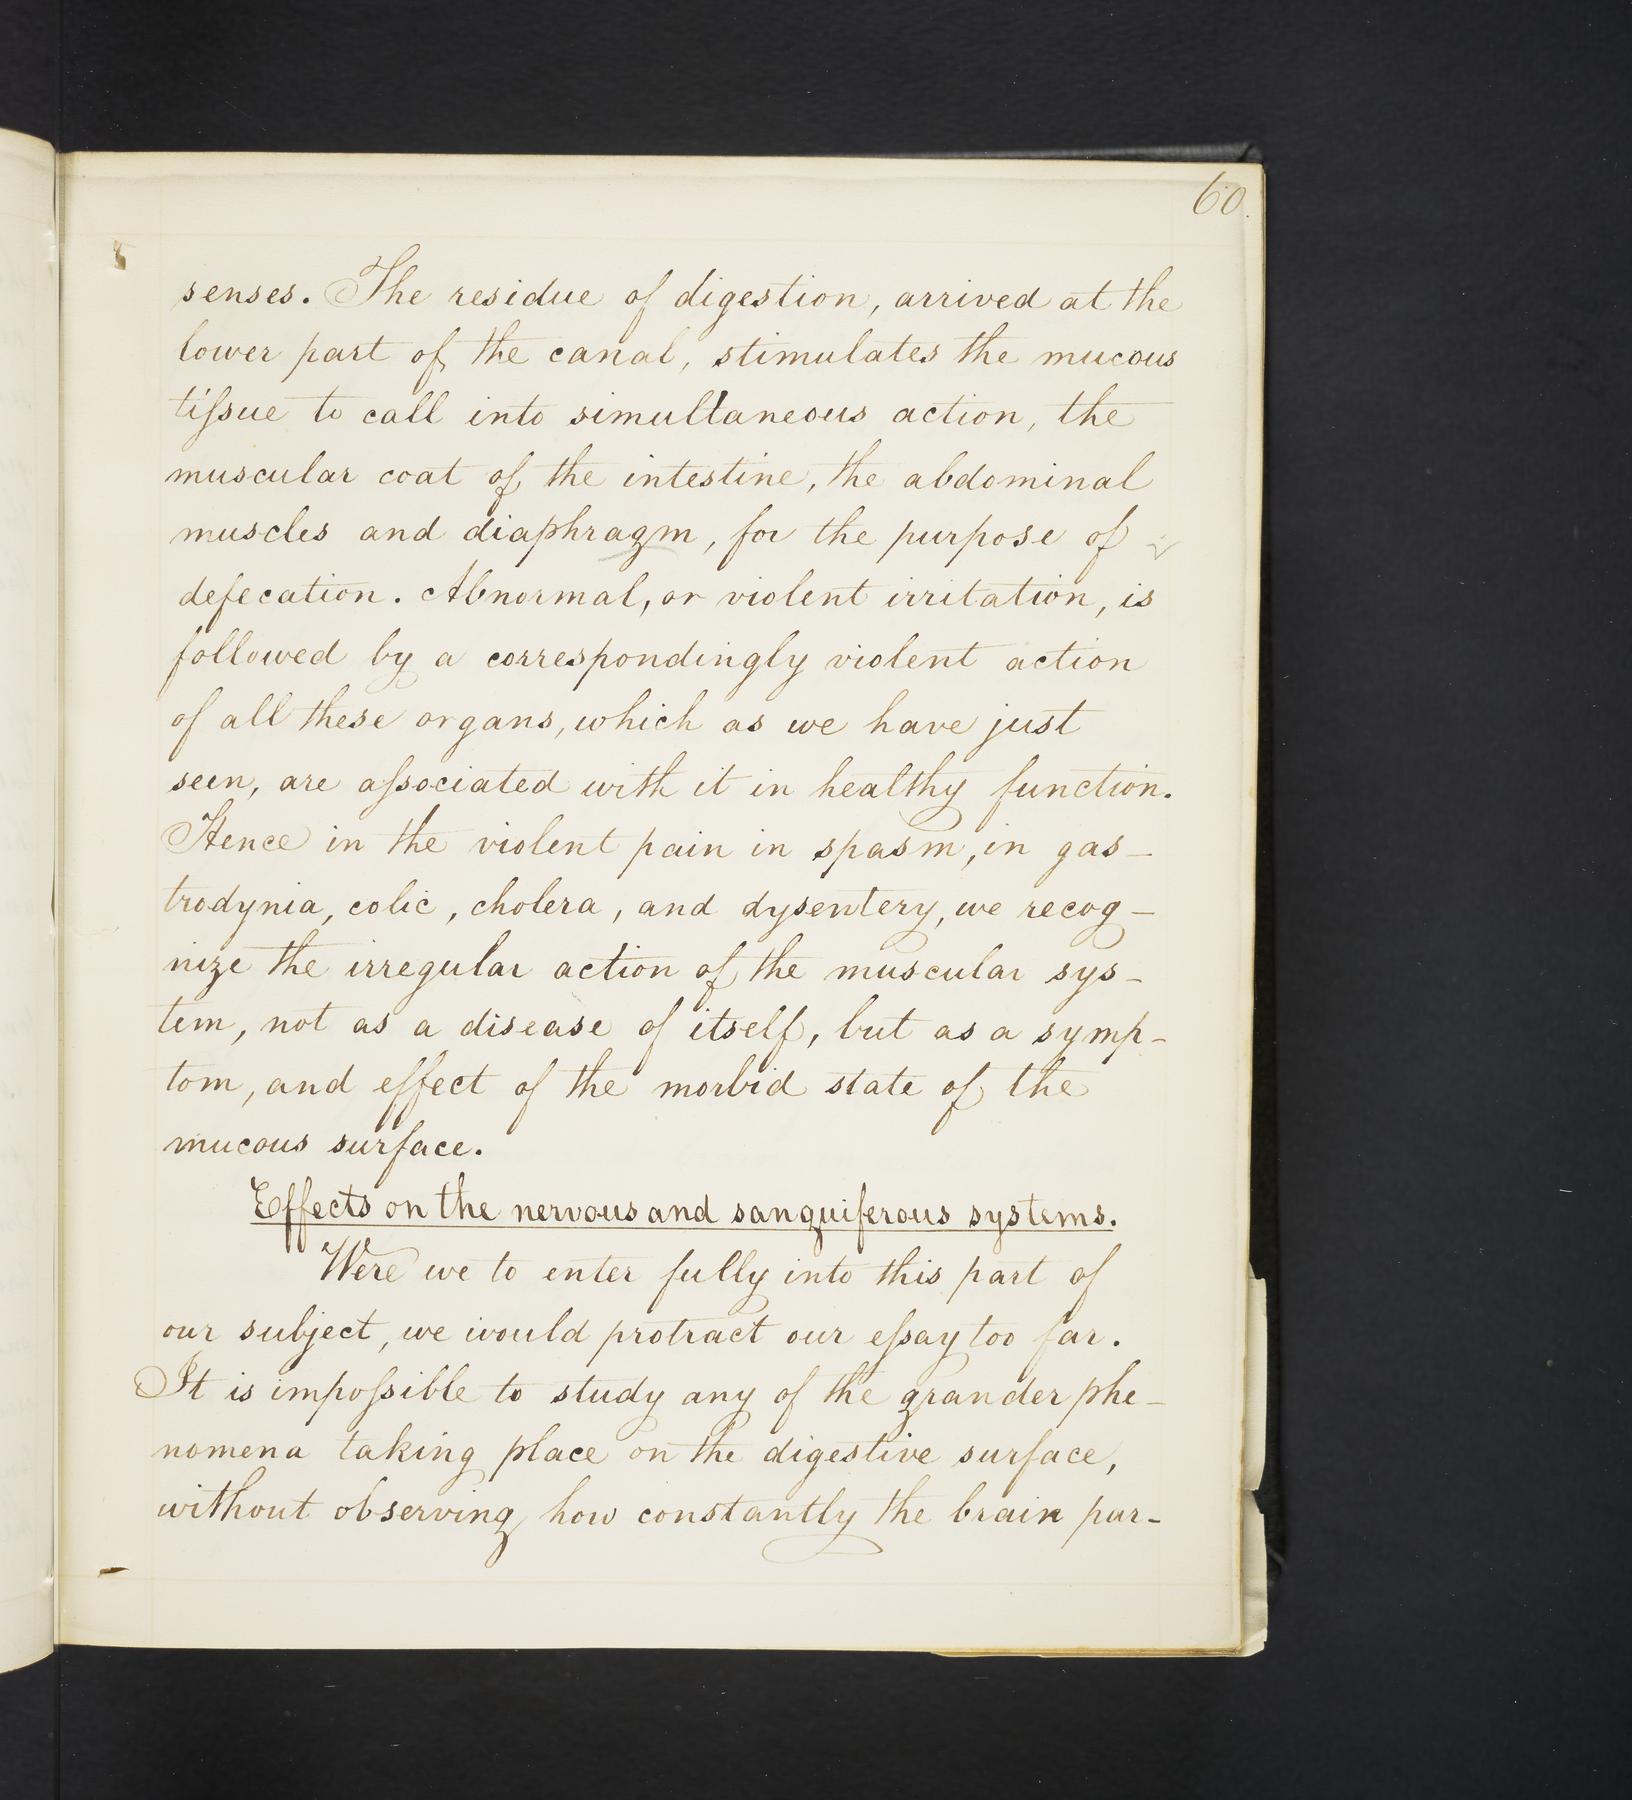 60.
senses. The residue of digestion, arrived at the
lower part of the canal, stimulates the mucous
tiſsue to call into simultaneous action, the
muscular coat of the intestine, the abdominal
muscles and diaphragm, for the purpose of
defecation. Abnormal, or violent irritation, is
followed by a correspondingly violent action
of all these organs, which as we have just
seen, are aſsociated with it in healthy function.
Hence in the violent pain in spasm, in gas-
trodynia, colic, cholera, and dysentery, we recog-
nize the irregular action of the muscular sys-
tem, not as a disease of itself, but as a symp-
tom, and effect of the morbid state of the
mucous surface.
Effects on the nervous and sanguiferous systems.
Were we to enter fully into this part of
our subject, we would protract our eſsay too far.
It is impoſsible to study any of the grander phe-
nomena taking place on the digestive surface,
without observing how constantly the brain par-